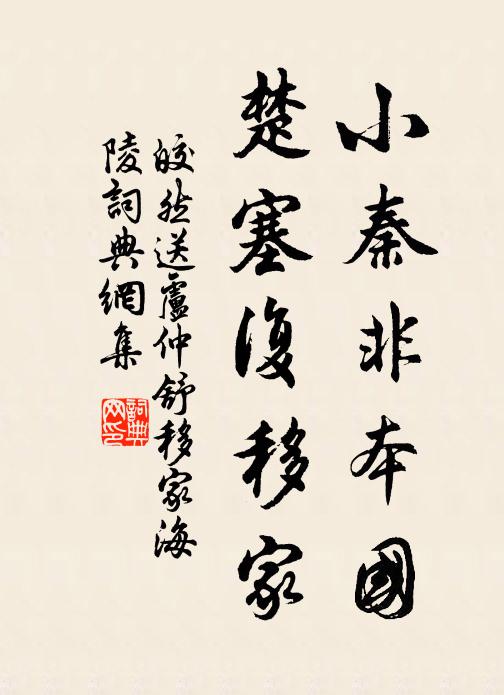 小秦非本國
楚塞復移家
皎然送盧仲舒移家海
陵詞典網集
詞典
网印